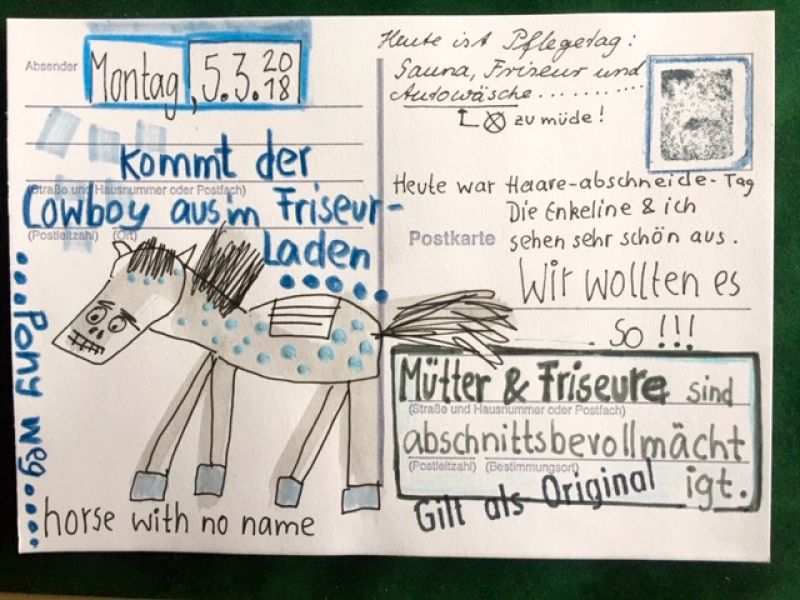 Absender
Montag, 5.3. 2018
kommt der
(Straße und Hausnummer oder Postfach)
Cowboy aus'm Friseur-
(Postleitzahl) (Ort)
Laden
...Pony weg....
horse with no name
Heute ist Pflegetag:
Sauna, Friseur und
Autowäsche..........
zu müde!
Heute war Haare-abschneide-Tag
Die Enkeline & ich
Postkarte
sehen sehr schön aus.
Wir wollten es
. So !!!
Mütter & Friseure sind
(Straße und Hausnummer oder Postfach)
abschnittsbevollmächt
(Postleitzahl) (Bestimmungsort)
igt.
Gilt als Original